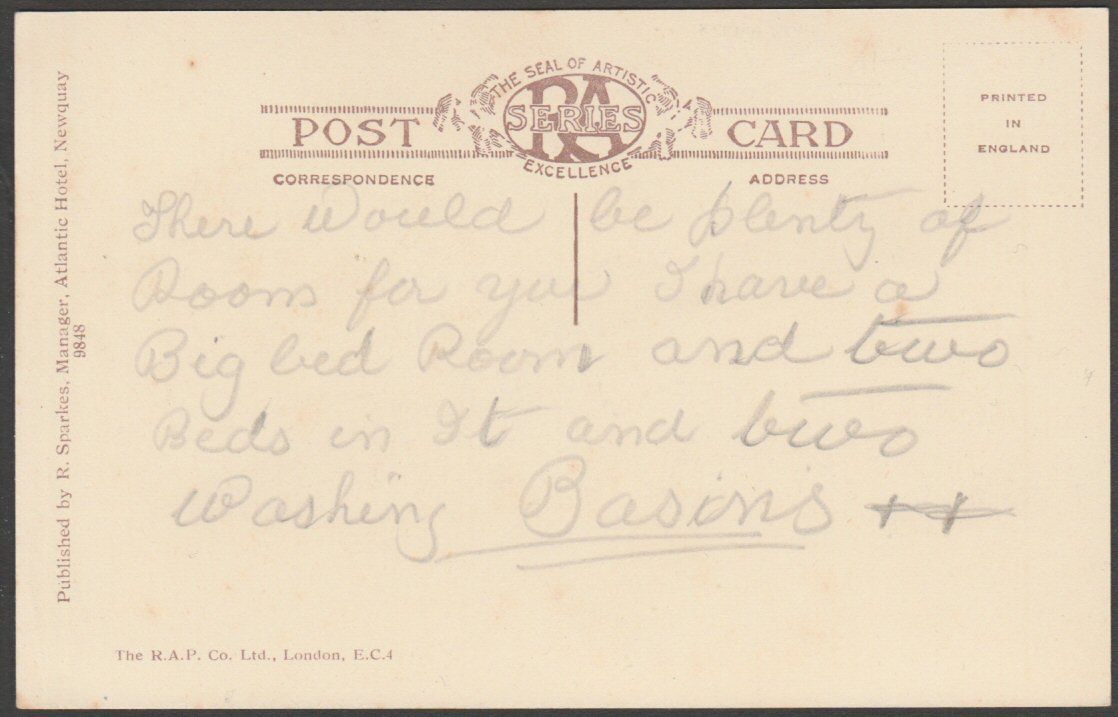 THE SEAL OF ARTISTIC
RA
SERIES
EXCELLENCE
POST CARD
CORRESPONDENCE
ADDRESS
PRINTED
IN
ENGLAND
There Would be plenty of
Room for you I have a
Big bed Room and two
Beds in It and two
Washing Basins
Published by R. Sparkes, Manager, Atlantic Hotel, Newquay
9848
The R.A.P. Co. Ltd., London, E.C.4